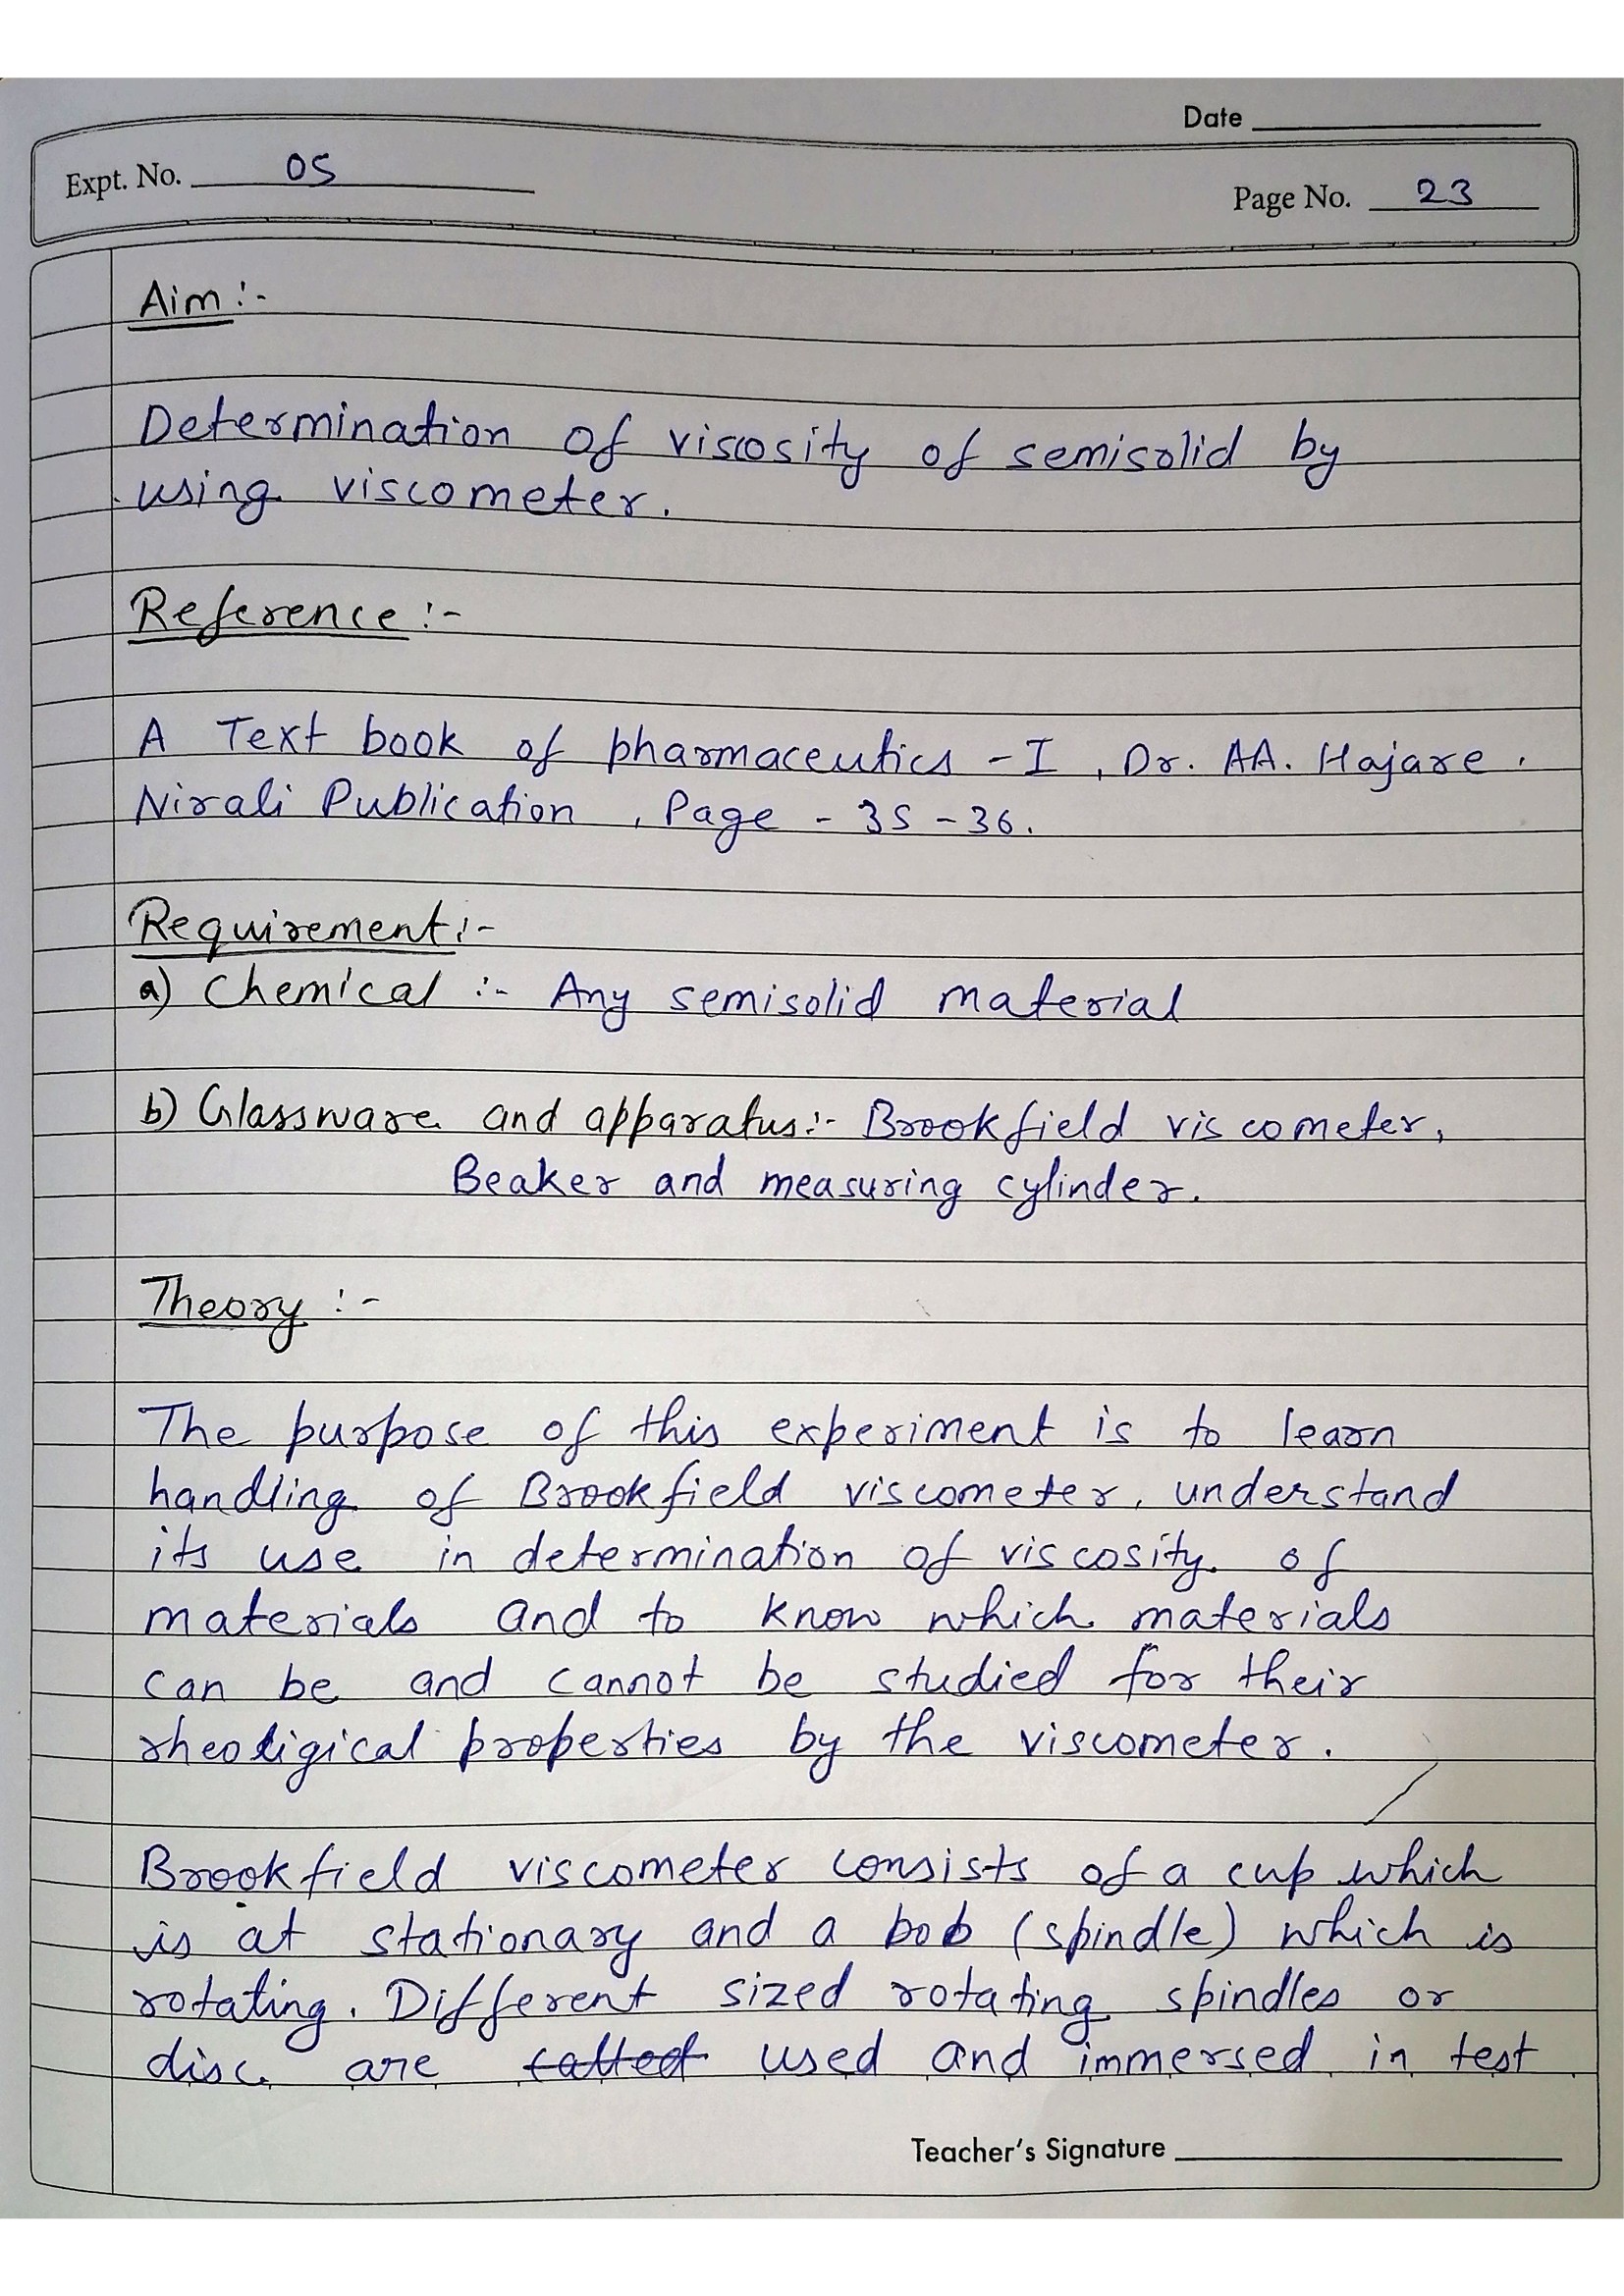 Date
Expt. No. 05
Page No. 23
Aim :-
Determination of viscosity of semisolid by
using viscometer.
Reference :-
A Text book of pharmaceutics - I , Dr. AA. Hajare .
Nirali Publication , Page - 35 - 36.
Requirement :-
a) Chemical :- Any semisolid material
b) Glassware and apparatus :- Brookfield viscometer,
Beaker and measuring cylinder.
Theory :-
The purpose of this experiment is to learn
handling of Brookfield viscometer, understand
its use in determination of viscosity of
materials and to know which materials
can be and cannot be studied for their
rheoligical properties by the viscometer.
Brookfield viscometer consists of a cup which
is at stationary and a bob (spindle) which is
rotating. Different sized rotating spindles or
disc are used and immersed in test
Teacher's Signature